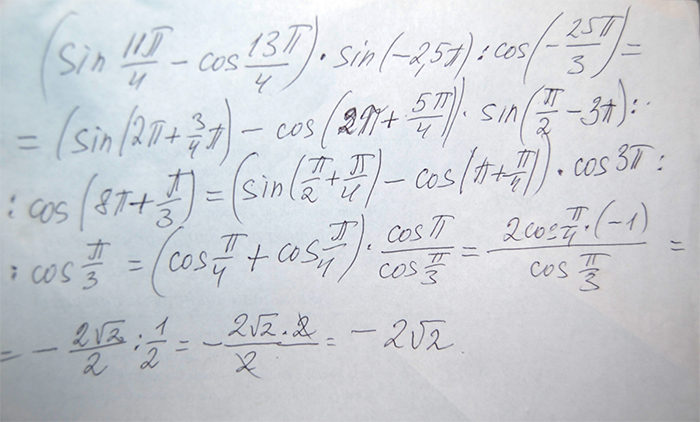 (sin 11π/4 − cos 13π/4) · sin(−2,5π) : cos(−25π/3) =
= (sin(2π + 3/4 π) − cos(2π + 5π/4)) · sin(π/2 − 3π) :
: cos(8π + π/3) = (sin(π/2 + π/4) − cos(π + π/4)) · cos 3π :
: cos π/3 = (cos π/4 + cos π/4) · cos π / cos π/3 = 2cos π/4 · (−1) / cos π/3 =
= − 2√2/2 : 1/2 = − 2√2 · 2 / 2 = − 2√2